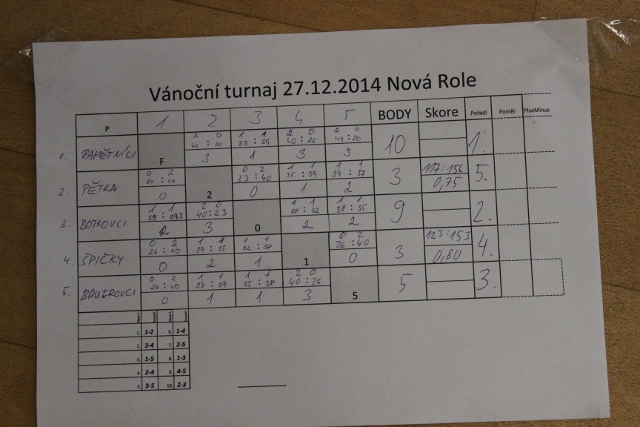 Vánoční turnaj 27.12.2014 Nová Role
P 1 2 3 4 5 BODY Skore Pořadí Poměr PlusMinus
2 0 1 1 2 0 2 0
1. PAMĚTNÍCI F 40:20 40:20
3 1 3 3 10 1.
0 2 0 2 1 1 1 1 117:156
2 PĚTKA 2 23:40 35:39 39:37 3 0,75 5.
0 0 1 2
1 1 2 0 1 1 1 1
3. BOTKOVCI 40:23 0 38:35 9 2.
2 3 2 2
0 2 1 1 1 1 0 2 123:153
4. ŠPIČKY 26:40 39:35 1 26:40 3 0,80 4.
0 2 1 0
0 2 1 1 1 1 2 0
5. BAUEROVCI 20:40 37:39 35:38 40:26 5 5 3.
0 1 1 3
1. 1-2 6. 1-4
2. 3-4 7. 2-5
3. 1-5 8. 1-3
4. 2-4 9. 4-5
5. 3-5 10. 2-3